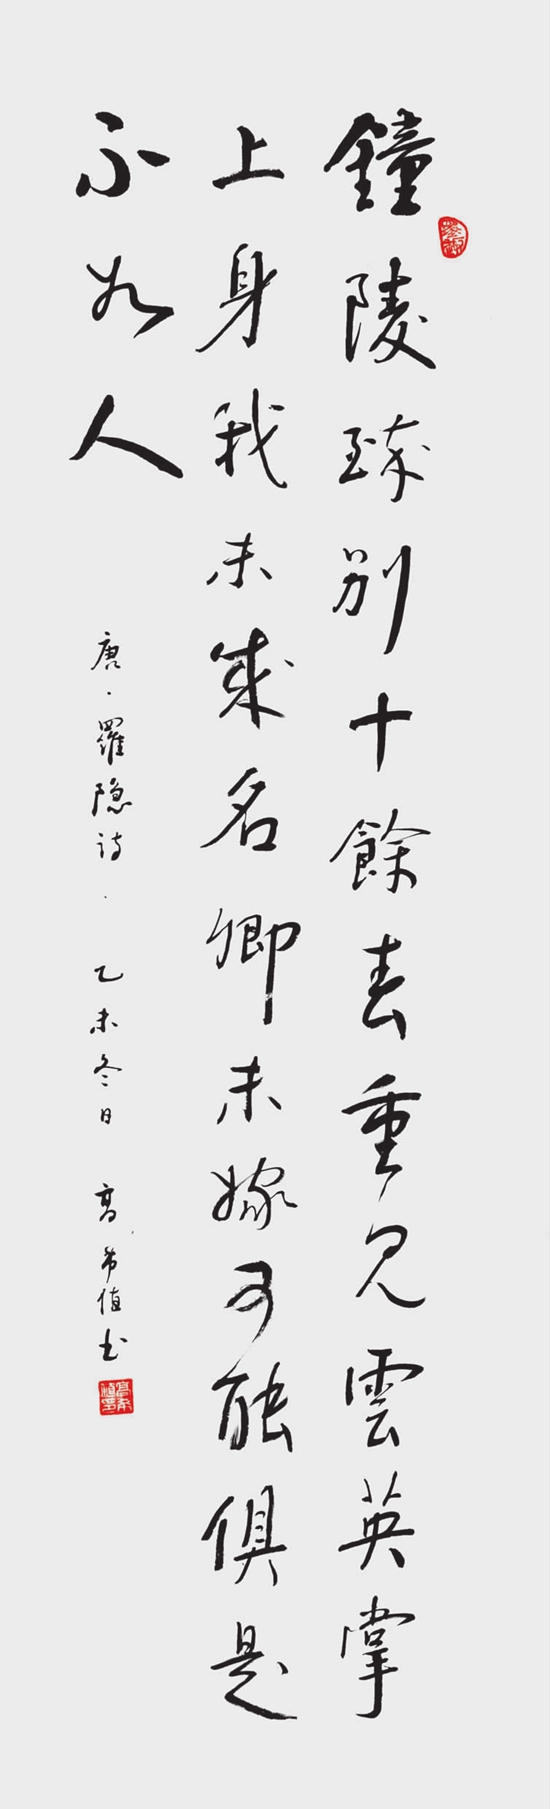 鐘陵醉別十餘春重見雲英掌
上身我未成名卿未嫁可能俱是
不如人
唐·羅隐诗· 乙未冬日 高希值书